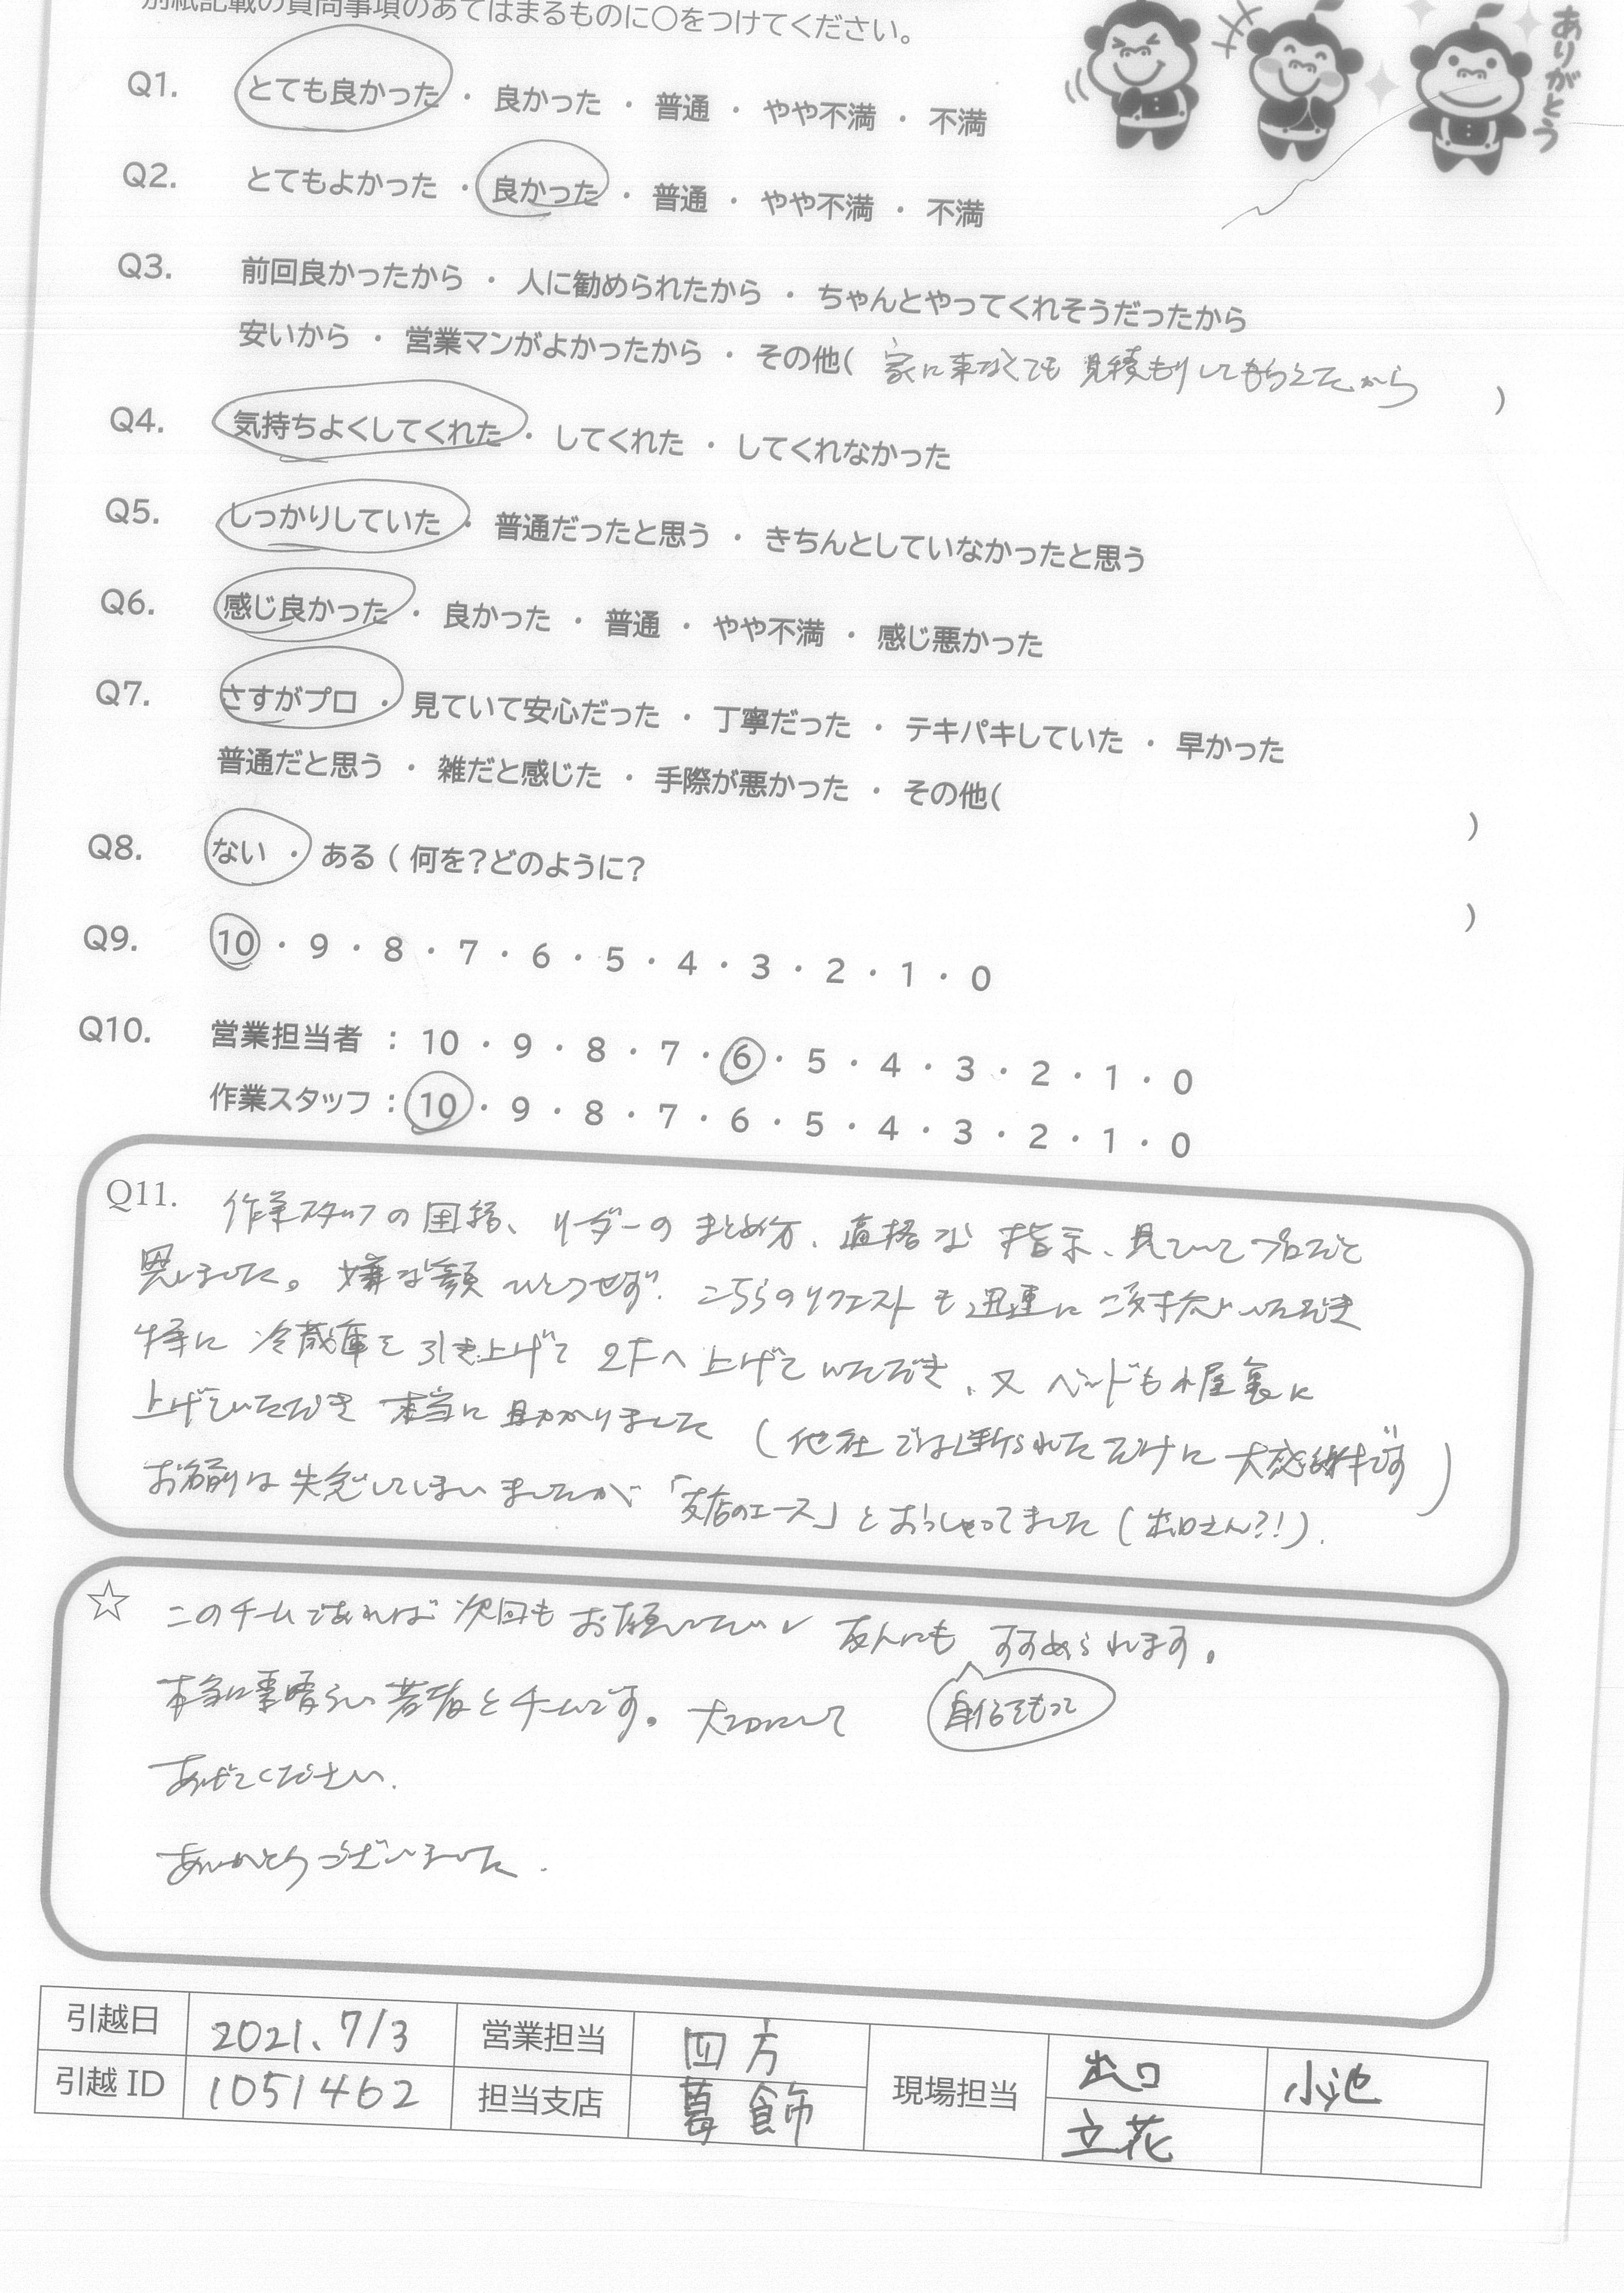 別紙記載の質問事項のあてはまるものに○をつけてください。
ありがとう
Q1. とても良かった ・ 良かった ・ 普通 ・ やや不満 ・ 不満
Q2. とてもよかった ・ 良かった ・ 普通 ・ やや不満 ・ 不満
Q3. 前回良かったから ・ 人に勧められたから ・ ちゃんとやってくれそうだったから
安いから ・ 営業マンがよかったから ・ その他( 家に来なくても 見積もりしてもらえたから )
Q4. 気持ちよくしてくれた ・ してくれた ・ してくれなかった
Q5. しっかりしていた ・ 普通だったと思う ・ きちんとしていなかったと思う
Q6. 感じ良かった ・ 良かった ・ 普通 ・ やや不満 ・ 感じ悪かった
Q7. さすがプロ ・ 見ていて安心だった ・ 丁寧だった ・ テキパキしていた ・ 早かった
普通だと思う ・ 雑だと感じた ・ 手際が悪かった ・ その他( )
Q8. ない ・ ある ( 何を?どのように? )
Q9. 10 ・ 9 ・ 8 ・ 7 ・ 6 ・ 5 ・ 4 ・ 3 ・ 2 ・ 1 ・ 0
Q10. 営業担当者 : 10 ・ 9 ・ 8 ・ 7 ・ 6 ・ 5 ・ 4 ・ 3 ・ 2 ・ 1 ・ 0
作業スタッフ : 10 ・ 9 ・ 8 ・ 7 ・ 6 ・ 5 ・ 4 ・ 3 ・ 2 ・ 1 ・ 0
Q11. 作業スタッフの団結、リーダーのまとめ方、的確な 指示、見ていてプロだと
思いました。嫌な顔ひとつせず、こちらのリクエストも迅速にご対応いただき
特に 冷蔵庫を引き上げて 2Fへ上げていただき、又 ベッドも小屋裏に
上げていただき 本当に助かりました (他社では断られただけに大感謝です)
お名前は失念してしまいましたが「支店のエース」とおっしゃってました (出口さん?!).
☆ このチームであれば 次回もお願いしたいし 友人にも すすめられます。
自信をもって
本当に素晴らしい若者とチームです。大切にして
あげてください.
ありがとうございました.
引越日 2021. 7/3 営業担当 四方 現場担当 出口 小池
引越ID 1051462 担当支店 葛飾 立花